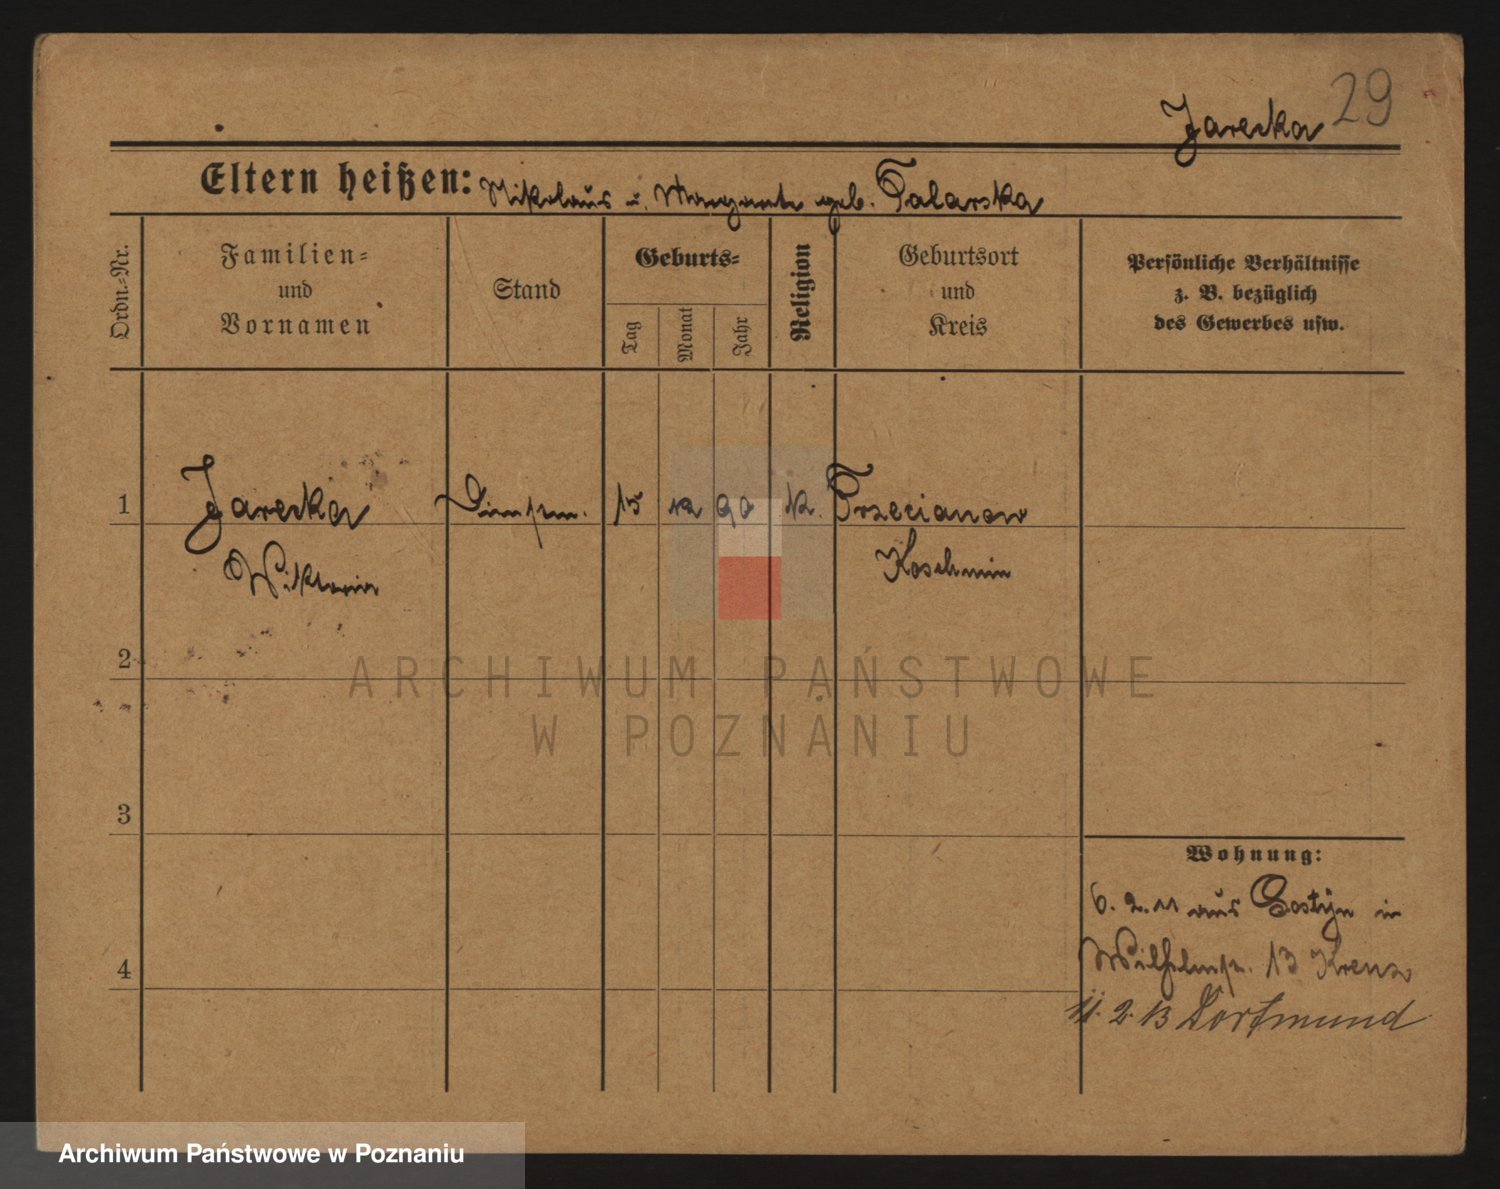 Jarecka 29
Eltern heißen: Nikolaus u. Margarete geb. Talarska
Ordn.-Nr.
Familien=
und
Vornamen
Stand
Geburts=
Tag
Monat
Jahr
Religion
Geburtsort
und
Kreis
Persönliche Verhältnisse
z. B. bezüglich
des Gewerbes usw.
1 Jarecka 15 12 90 k. Trzecianow
Wiktoria Koschmin
2
ARCHIWUM PAŃSTWOWE
W POZNANIU
3
Wohnung:
6. 2. 11 aus Gostyn in
4 Wilhelmstr. 13 Kreuz
11. 2. 13 Dortmund
Archiwum Państwowe w Poznaniu